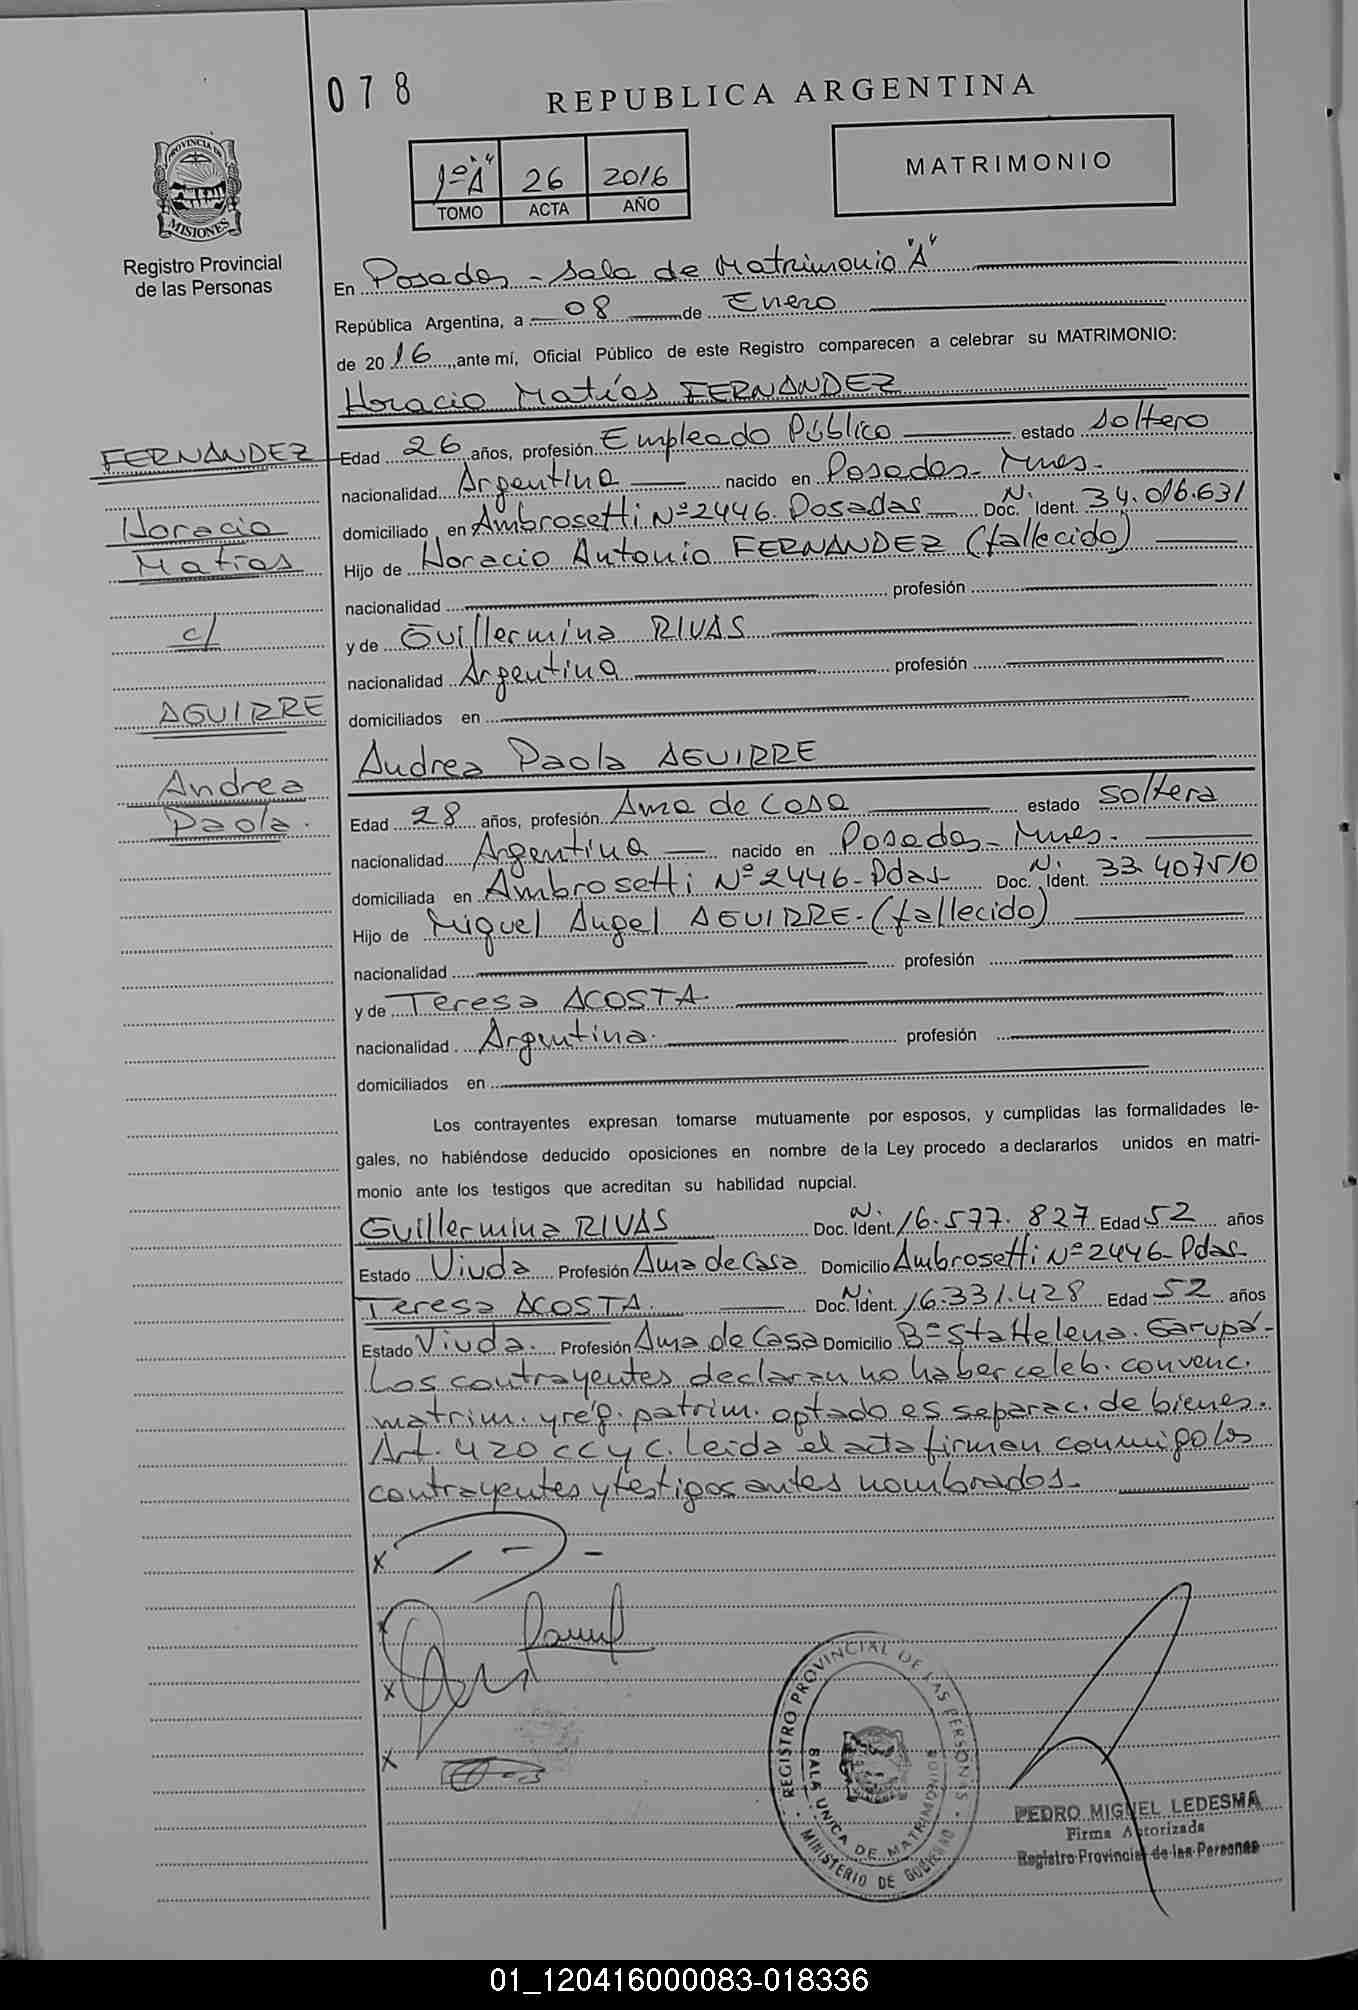 078
REPUBLICA ARGENTINA
PROVINCIA DE
MISIONES
Registro Provincial
de las Personas
1º "A" 26 2016
TOMO ACTA AÑO
MATRIMONIO
En Posadas - Sala de Matrimonio "A"
República Argentina, a 08 de Enero
de 2016, ante mí, Oficial Público de este Registro comparecen a celebrar su MATRIMONIO:
Horacio Matías FERNANDEZ
Edad 26 años, profesión Empleado Público estado Soltero
nacionalidad Argentina nacido en Posadas - Mnes -
domiciliado en Ambrosetti Nº 2446. Posadas Doc. N. Ident. 34.016.631
Hijo de Horacio Antonio FERNANDEZ (fallecido)
nacionalidad profesión
y de Guillermina RIVAS
nacionalidad Argentina profesión
domiciliados en
Andrea Paola AGUIRRE
Edad 28 años, profesión Ama de Casa estado Soltera
nacionalidad Argentina nacido en Posadas - Mnes -
domiciliada en Ambrosetti Nº 2446 - Pdas - Doc. N. Ident. 33.407510
Hijo de Miguel Angel AGUIRRE - (fallecido)
nacionalidad profesión
y de Teresa ACOSTA
nacionalidad Argentina. profesión
domiciliados en
FERNANDEZ
Horacio
Matías
c/
AGUIRRE
Andrea
Paola.
Los contrayentes expresan tomarse mutuamente por esposos, y cumplidas las formalidades le-
gales, no habiéndose deducido oposiciones en nombre de la Ley procedo a declararlos unidos en matri-
monio ante los testigos que acreditan su habilidad nupcial.
Guillermina RIVAS Doc. N. Ident. 16.577.827 Edad 52 años
Estado Viuda Profesión Ama de Casa Domicilio Ambrosetti Nº 2446 - Pdas -
Teresa ACOSTA. Doc. N. Ident. 16.331.428 Edad 52 años
Estado Viuda. Profesión Ama de Casa Domicilio Bº Sta Helena. Garupá -
Los contrayentes declaran no haber celeb. convenc.
matrim. y rég. patrim. optado es separac. de bienes.
Art. 420 CCyC. Leída el acta firman conmigo los
contrayentes y testigos antes nombrados.
x
x
x
x
REGISTRO PROVINCIAL DE LAS PERSONAS
SALA UNICA DE MATRIMONIOS
MINISTERIO DE GOBIERNO
PEDRO MIGUEL LEDESMA
Firma Autorizada
Registro Provincial de las Personas
01_120416000083-018336